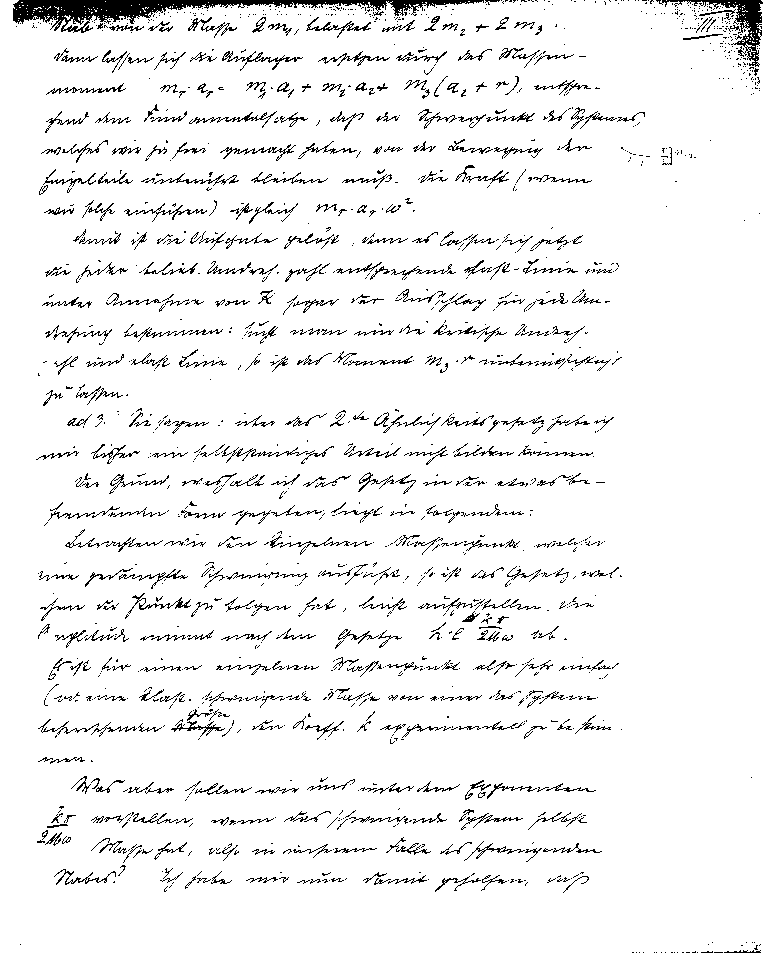 III
Stab von der Masse 2m₁, belastet mit 2m₂ + 2m₃.
Dann lassen sich die Auflager ersetzen durch das Massen-
moment mᵣ·aᵣ = m₁·a₁ + m₂·a₂ + m₃(a₂ + r), entspre-
chend dem Fundamentalsatze, daß der Schwerpunkt des Systemes,
welches wir ja frei gemacht haben, von der Bewegung der
Einzelteile unberührt bleiben muß. Die Kraft (wenn
wir solche einführen) ist gleich mᵣ·aᵣ·ω².
Damit ist die Aufgabe gelöst, denn es lassen sich jetzt
die jeder belieb. Umdreh. zahl entsprechende elast. Linie und
unter Annahme von K sogar der Ausschlag für jede Um-
drehung bestimmen: sucht man nur die kritische Umdreh.
zahl und elast. Linie, so ist das Moment m₃·r unberücksichtigt
zu lassen.
ad 3. Sie sagen: über das 2.te Ähnlichkeitsgesetz habe ich
mir bisher ein selbstständiges Urteil nicht bilden können.
Der Grund, weshalb ich das Gesetz in der etwas be-
fremdenden Form gegeben, liegt in folgendem:
Betrachten wir den einzelnen Massenpunkt, welcher
eine gedämpfte Schwingung ausführt, so ist das Gesetz, wel-
chem der Punkt zu folgen hat, leicht aufzustellen. Die
Amplitude nimmt nach dem Gesetze h·e kπ/2Mω ab.
Es ist für einen einzelnen Massenpunkt also sehr einfach
(od. eine elast. schwingende Masse von einer das System
beherrschenden Größe), den Koeff. k experimentell zu bestim-
men.
Was aber sollen wir uns unter dem Exponenten
kπ/2Mω vorstellen, wenn das schwingende System selbst
Masse hat, also in unserem Falle des schwingenden
Stabes? Ich habe mir nun damit geholfen, daß